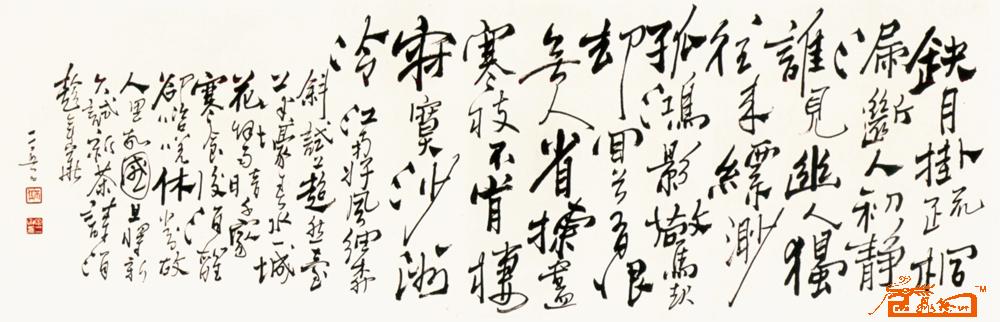 缺月掛疏桐
漏斷人初靜
誰見幽人獨
往來縹渺
孤鴻影驚起
却回首有恨
無人省揀盡
寒枝不肯棲
寂寞沙洲
冷 江南 風細柳
斜試上超然臺
上看半壕春水一城
花煙雨暗千家
寒食後酒醒
卻咨嗟休對故
人思故國且將新
火試新茶詩酒
趁年華